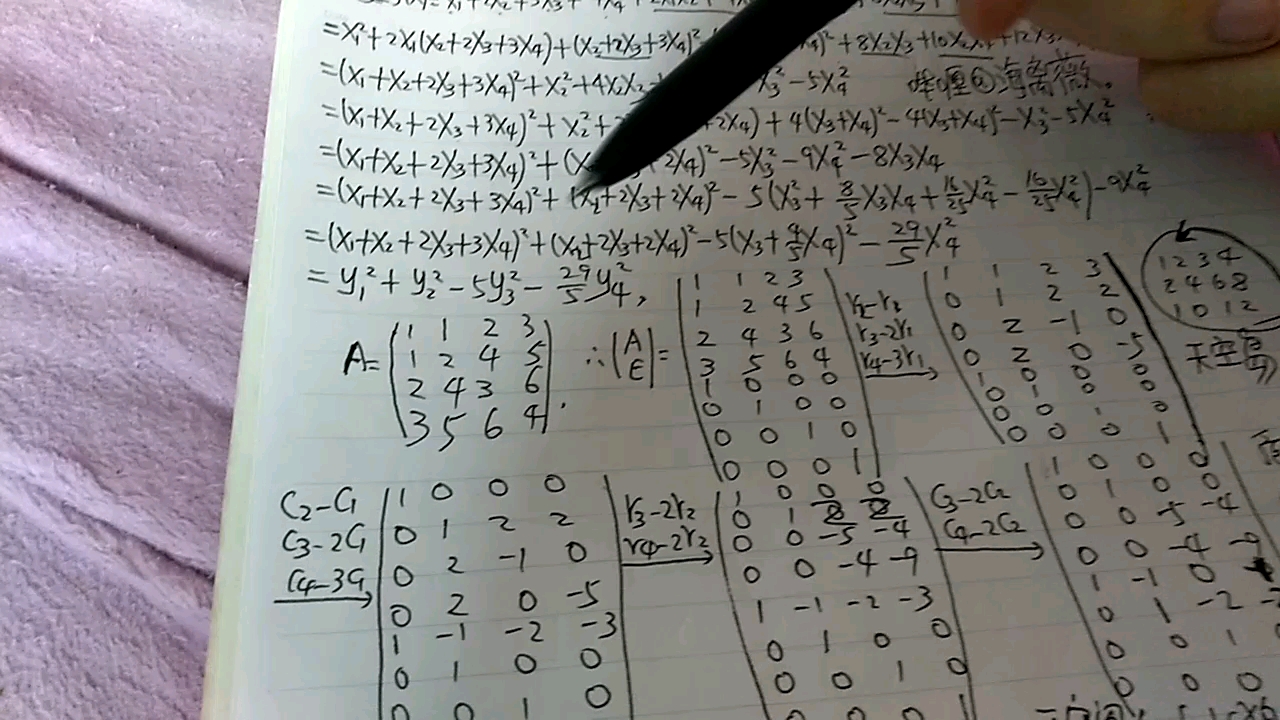 =x₁²+2x₁(x₂+2x₃+3x₄)+(x₂+2x₃+3x₄)² +8x₂x₃+10x₂x₄+12x₃
=(x₁+x₂+2x₃+3x₄)²+x₂²+4x₂x₃ x₃²-5x₄²
哔哩 海离薇。
=(x₁+x₂+2x₃+3x₄)²+x₂²+ 2x₄)+4(x₃+x₄)²-4(x₃+x₄)²-x₃²-5x₄²
=(x₁+x₂+2x₃+3x₄)²+(x 2x₄)²-5x₃²-9x₄²-8x₃x₄
=(x₁+x₂+2x₃+3x₄)²+(x₂+2x₃+2x₄)²-5(x₃²+8/5x₃x₄+16/25x₄²-16/25x₄²)-9x₄²
=(x₁+x₂+2x₃+3x₄)²+(x₂+2x₃+2x₄)²-5(x₃+4/5x₄)²-29/5x₄²
=y₁²+y₂²-5y₃²-29/5y₄²,
A=
1 1 2 3
1 2 4 5
2 4 3 6
3 5 6 4
.
∴(A E)=
1 1 2 3
1 2 4 5
2 4 3 6
3 5 6 4
1 0 0 0
0 1 0 0
0 0 1 0
0 0 0 1
r₂-r₂
r₃-2r₁
r₄-3r₁
1 1 2 3
0 1 2 2
0 2 -1 0
0 2 0 -5
1 0 0 0
0 1 0 0
0 0 1 0
0 0 0 1
1 2 3 4
2 4 6 8
1 0 12
天空岛
C₂-C₁
C₃-2C₁
C₄-3C₁
1 0 0 0
0 1 2 2
0 2 -1 0
0 2 0 -5
1 -1 -2 -3
0 1 0 0
0 0 1 0
r₃-2r₂
r₄-2r₂
1 0 0 0
0 1 2 2
0 0 -5 -4
0 0 -4 -9
1 -1 -2 -3
0 1 0 0
0 0 1 0
0 0 0 1
C₃-2C₂
C₄-2C₂
1 0 0 0
0 1 0 0
0 0 -5 -4
0 0 -4 -9
1 -1 0
0 1 -2
0 0 1
0 0 0